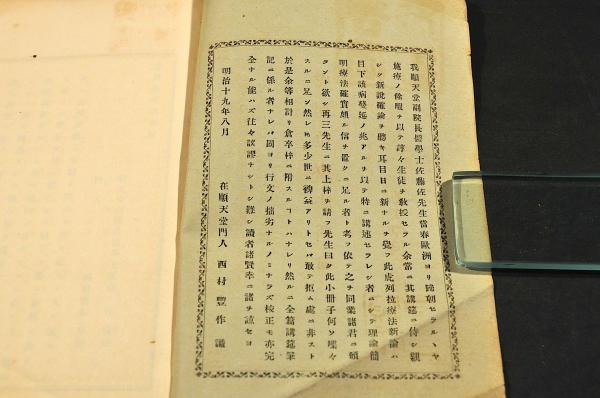 我順天堂副院長醫學士佐藤佐先生當春歐洲ヨリ歸朝セラルヽヤ
施療ノ餘暇ヲ以テ諄々生徒ヲ敎授セラル余當ニ其講筵ニ侍シ親
シク新說確論ヲ聽キ耳目日ニ新ナルヲ覺フ此虎列拉療法新論ハ
目下該病蔓延ノ兆アルヲ以テ特ニ講述セラレシ者ニシテ理論簡
明療法確實頗ル信ヲ置クニ足ル者ト考フ依テ之ヲ同業諸君ニ頒
タント欲シ再三先生ニ其上梓ヲ請フ先生曰ク此小冊子何ソ喋々
スルニ足ン然レ𪜈多少世ニ裨益アリトセバ敢テ拒ム處ニ非スト
於是余等相計リ倉卒梓ニ附スルコトハナレリ然ルニ全篇講筵筆
記ニ係ル者ナレバ固ヨリ行文ノ拙劣ナルノミナラズ校正モ亦完
全ナル能ハズ往々誤謬ナシトシ難シ讀者諸賢幸ニ諸ヲ諒セヨ
明治十九年八月
在順天堂門人 西村豐作識